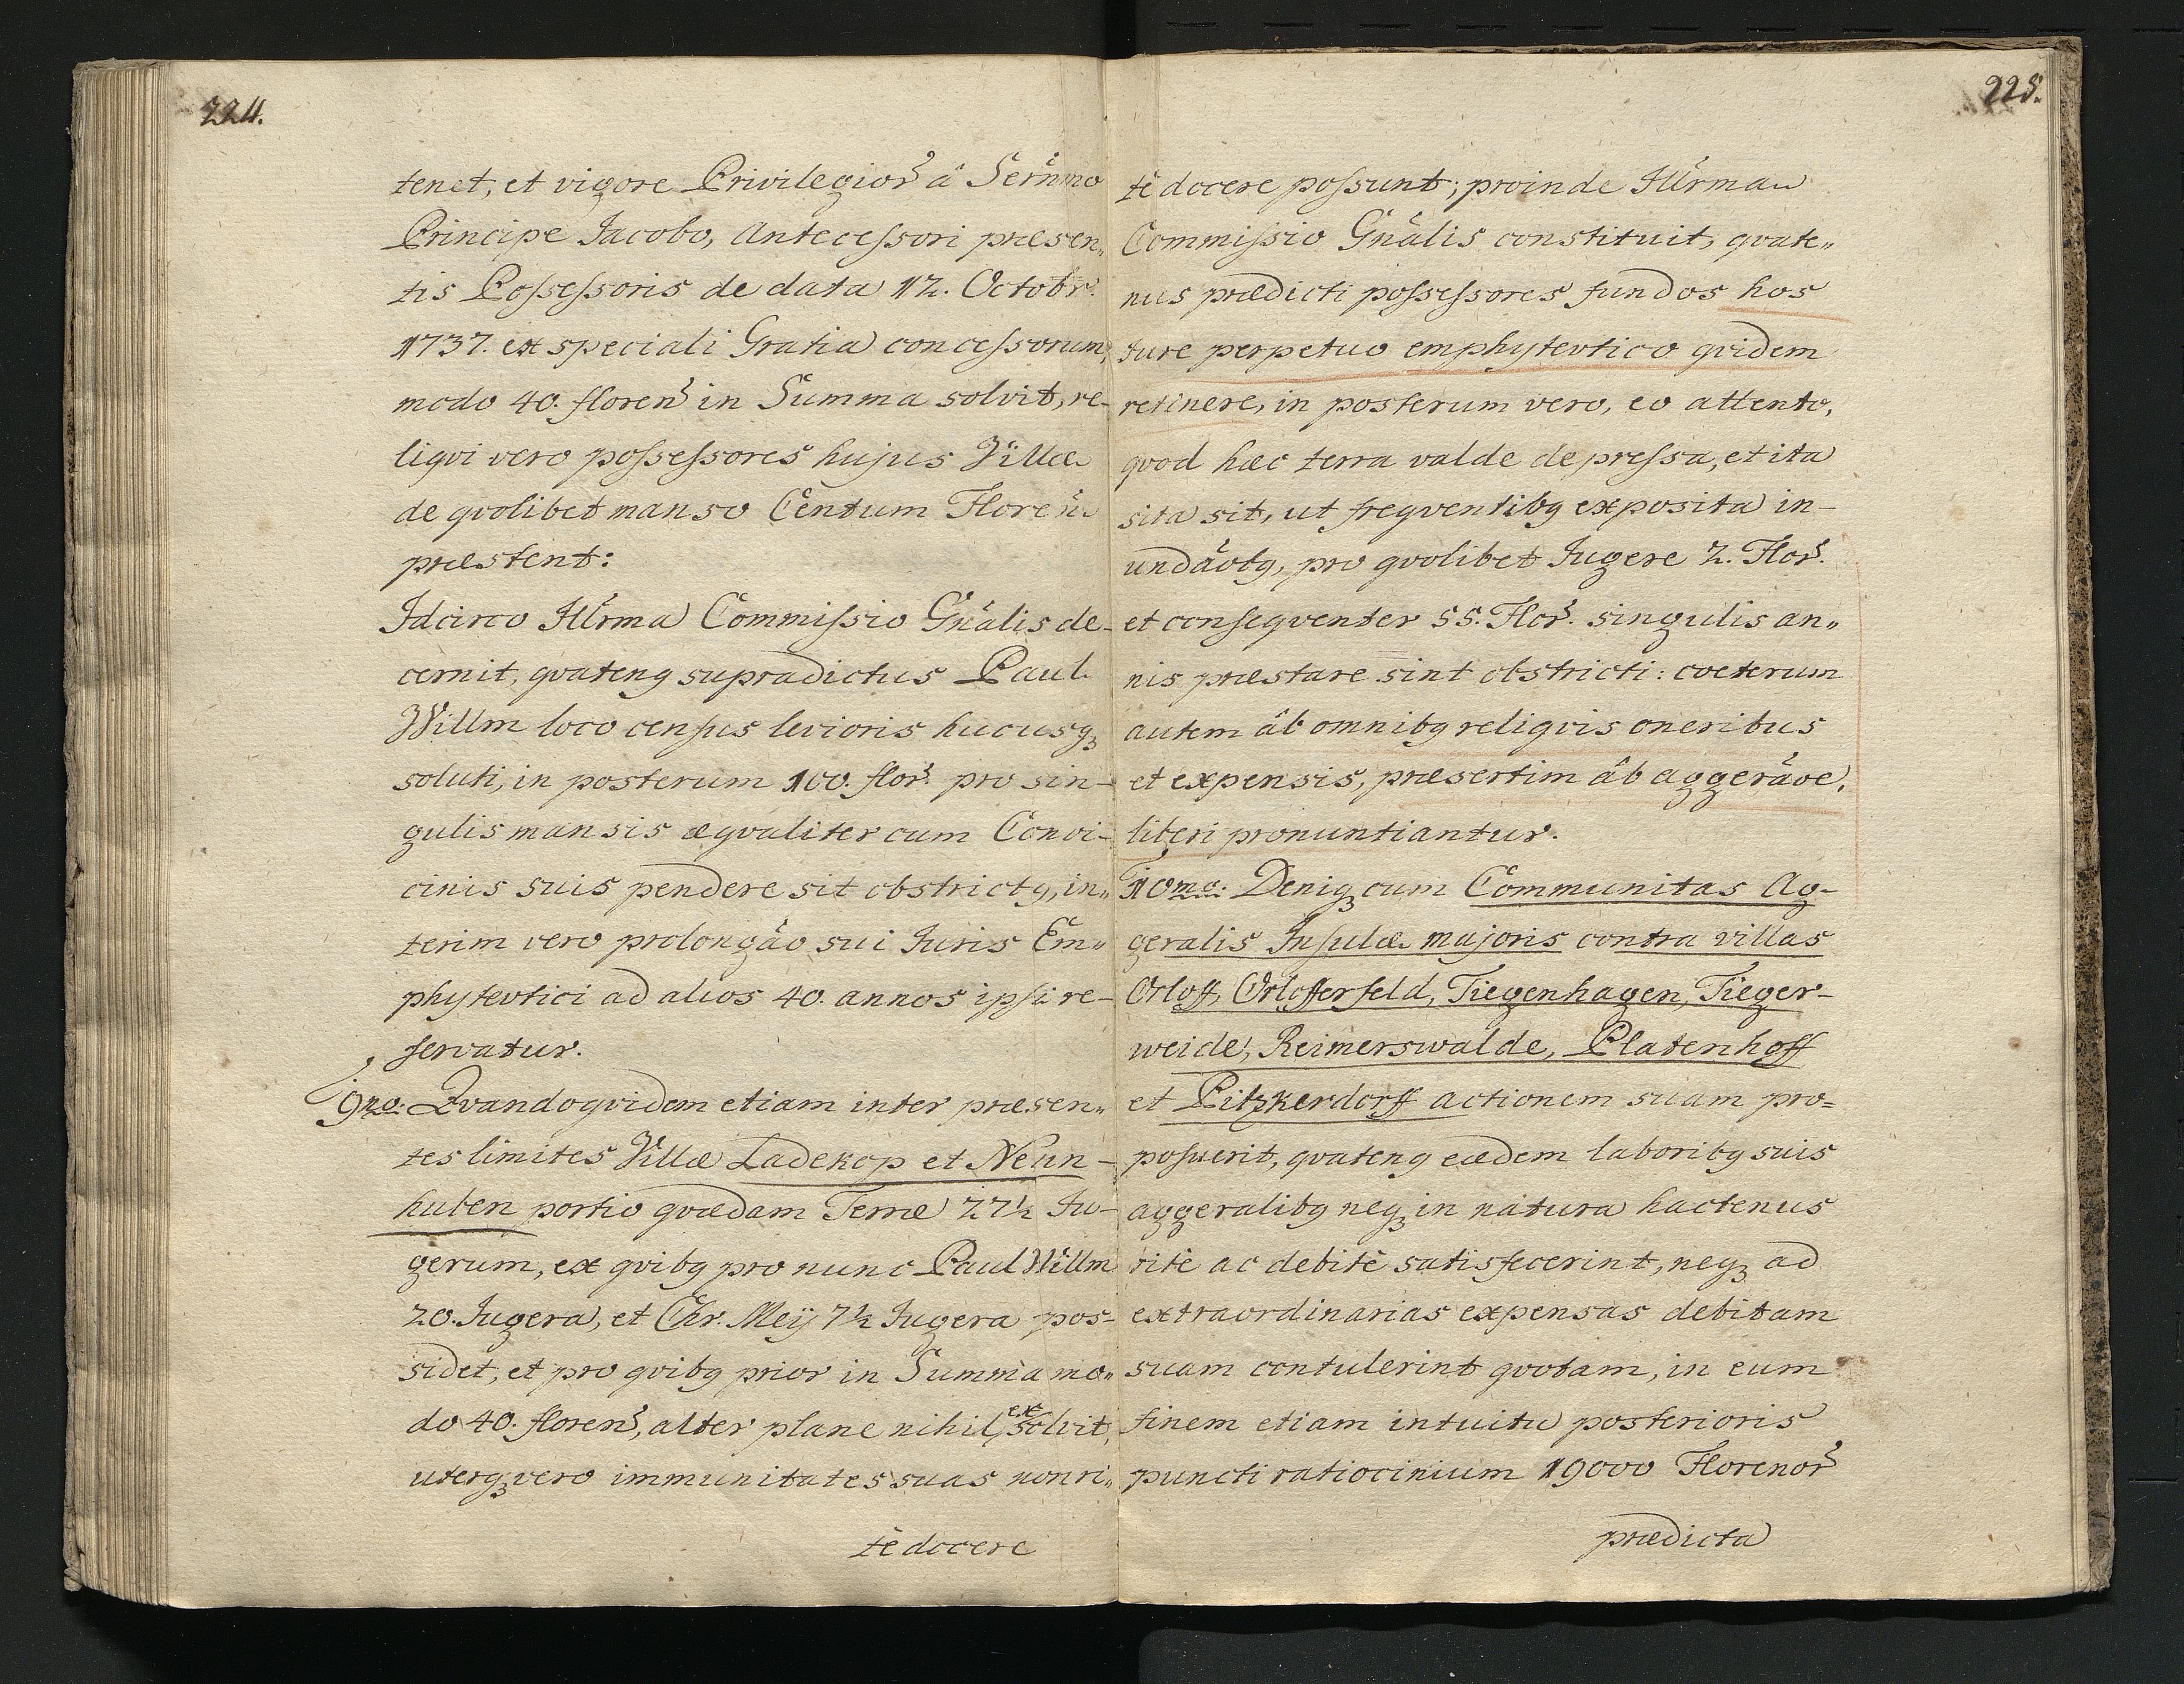 224.
tenet, et vigore Privilegior̃ â Serñmo
Principe Jacobo, Antecessori præsen„
tis Possessoris de data 12. Octobr.
1737. ex speciali Gratia concessorum,
modo 40. floreñ in Summa solvit, re-
liqvi vero possessores hujus Villæ
de qvolibet manso Centum Floreñ
præstent:
Idcirco Illr̃ma Commissio Gñalis de-
cernit, qvateng supradictus Paul
Willm loco census levioris hucusqꝫ
soluti, in posterum 100. flor̃. pro sin-
gulis mansis æqvaliter cum Convi-
cinis suis pendere sit obstrictg, in„
terim vero prolongão sui Juris Em„
phytevtici ad alios 40. annos ipsi re-
servatur.
9no. Qvandoqvidem etiam inter præsen„
tes limites Villæ Ladekop et Neun-
huben portio qvædam Terræ 27½ Ju-
gerum, ex qvibg pro nunc Paul Willm
20. Jugera, et Chr. Meÿ 7½ Jugera pos-
sidet, et pro qvibg prior in Summa mo„
do 40. floreñ, alter plane nihil exsolvit,
uterqꝫ vero immunitates suas non ri„
tè docere
225.
tè docere possunt; proinde Illr̃ma
Commissio Gñalis constituit, qvate„
nus prædicti possessores fundos hos
jure perpetuo emphytevtico qvidem
retinere, in posterum vero, eo attento,
qvod hæc terra valde depressa, et ita
sita sit, ut freqventibg exposita in-
undãobg, pro qvolibet Jugere 2. Flor̃.
et conseqventer 55. Flor̃. singulis an„
nis præstare sint obstricti: cœterum
autem âb omnibg reliqvis oneribus
et expensis, præsertim âb aggerãoe,
liberi pronuntiantur.
10mo. Deniqꝫ cum Communitas Ag-
geralis Insulæ majoris contra villas
Orloff, Orlofferfeld, Tiegenhagen, Tieger-
weide, Reimerswalde, Platenhoff
et Pitzkerdorff actionem suam pro=
posuerit, qvateng eædem laboribg suis
aggeralibg neqꝫ in natura hactenus
ritè ac debitè satisfecerint, neqꝫ ad
extraordinarias expensas debitam
suam contulerint qvotam, in eum
finem etiam intuitu posterioris
puncti ratiocinium 19000 Florenor̃
prædicta